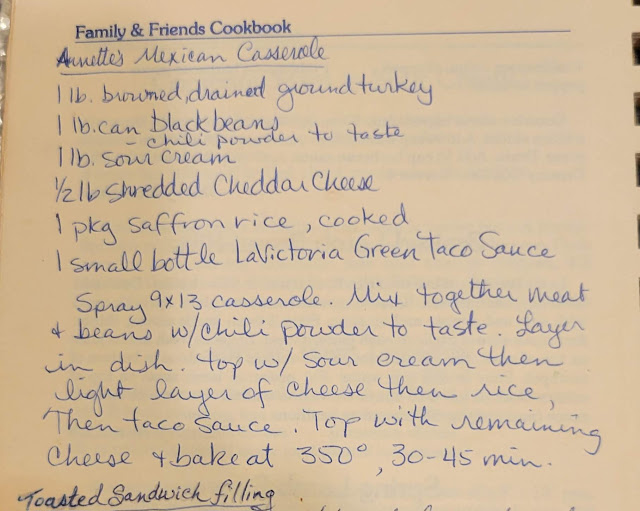 Family & Friends Cookbook
Annette's Mexican Casserole
1 lb. browned, drained ground turkey
1 lb. can black beans
- chili powder to taste
1 lb. sour cream
1/2 lb shredded Cheddar Cheese
1 pkg saffron rice, cooked
1 small bottle LaVictoria Green Taco Sauce
Spray 9x13 casserole. Mix together meat
& beans w/chili powder to taste. Layer
in dish. top w/ sour cream then
light layer of cheese then rice,
Then taco sauce. Top with remaining
cheese & bake at 350°, 30-45 min.
Toasted Sandwich filling